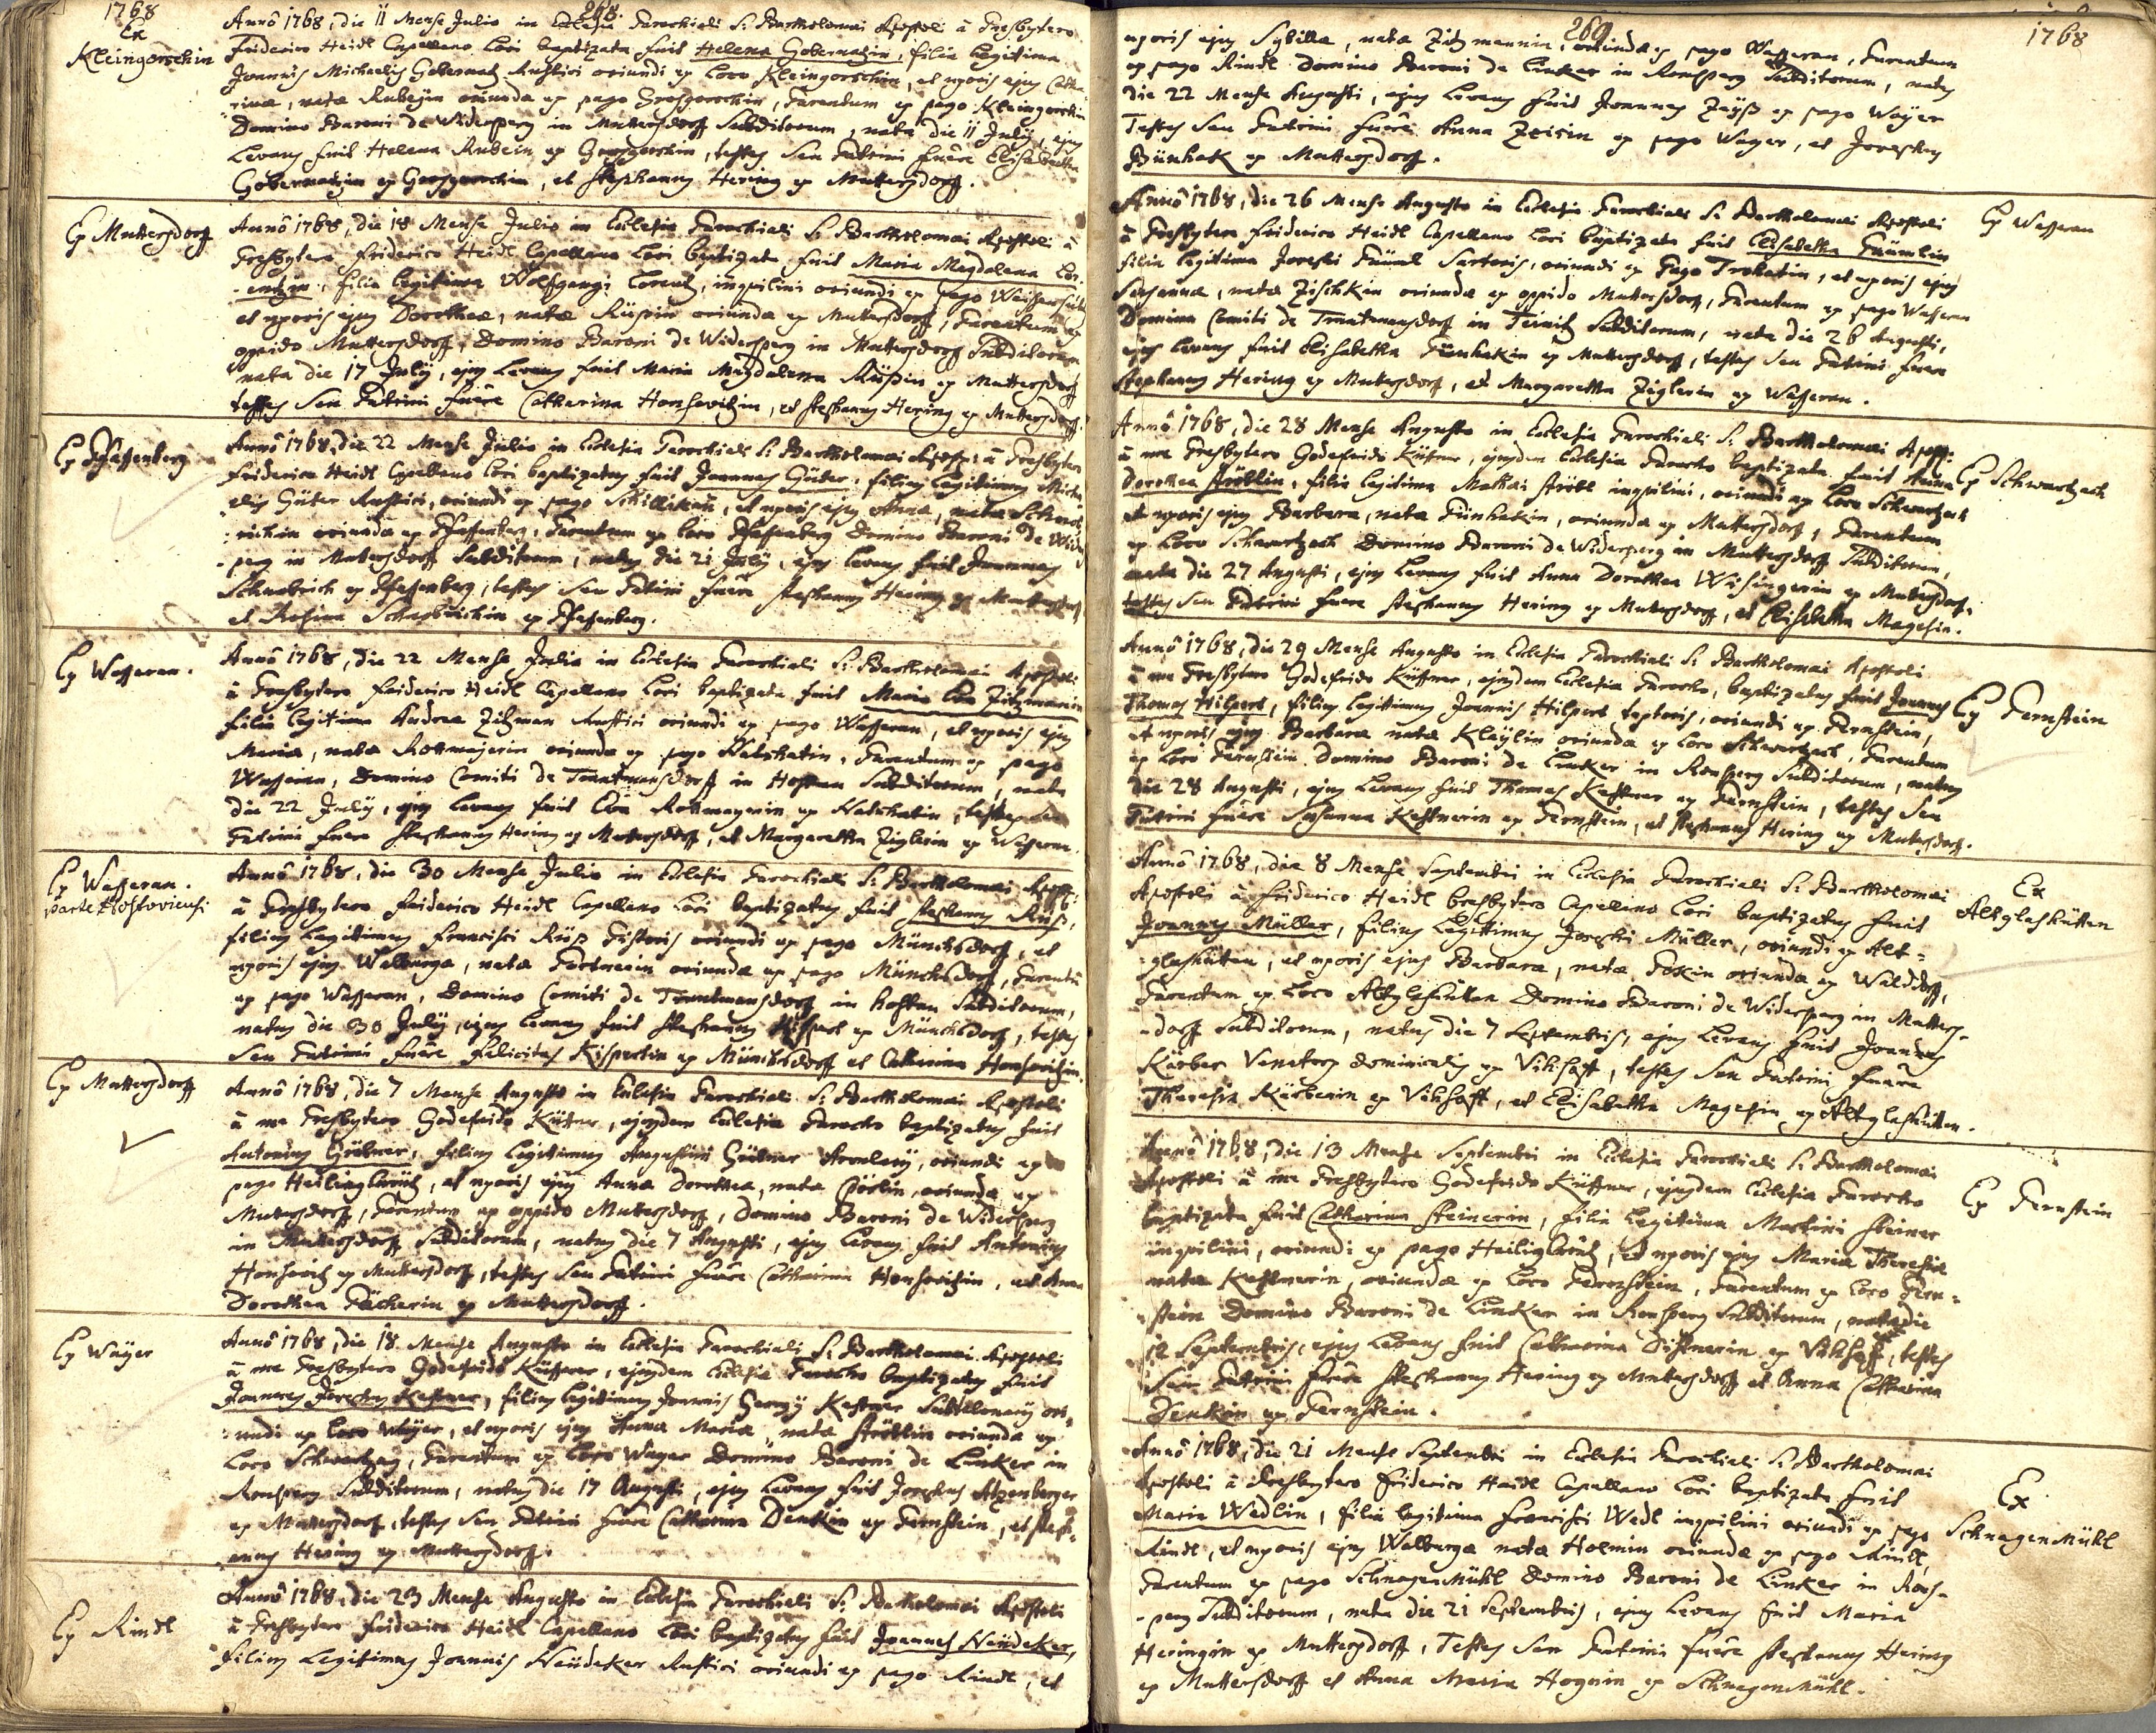 1768
268.
Ex
Kleingorschin
Anno 1768, die 11 Mense Julio in Ecclesia Parochiali S. Bartholomæi Apostoli à Presbytero
Friderico Heidl Capellano Loci baptizata fuit Helena Gobernatzin, filia legitima
Joannis Michaelis Gobernatz Rustici oriundi ex Loco Kleingorschin, et uxoris ejus Catha
rinæ, natæ Rubeyin oriundæ ex pago Grosgorschin, Parentum ex pago Kleingorschin
Domino Baroni de Widersperg in Muttersdorff Subditorum, nata die 11 July, ejus
Levans fuit Helena Rubein ex Grosgorschin, testes seu Patrini fuêre Elisabetha
Gobernatzin ex Grosgorschin, et Stephanus Hering ex Muttersdorff.
Ex Muttersdorff
Anno 1768, die 18 Mense Julio in Ecclesia Parochiali S. Bartholomæi Apostoli à
Presbytero Friderico Heidl Capellano Loci baptizata fuit Maria Magdalena Lor-
-entzin, filia legitima Wolffgangi Lorentz, inquilini oriundi ex pago
et uxoris ejus Dorotheæ, natæ Rüpin oriundæ ex Muttersdorff, Parentum ex
oppido Muttersdorff, Domino Baroni de Widersperg in Muttersdorff Subditorum
nata die 17 July, ejus Levans fuit Maria Magdalena Rüpin ex Muttersdorff
testes seu Patrini fuêre Catharina Honsevitzin, et Stephanus Hering ex Muttersdorff.
Ex Pfaffenberg
Anno 1768, die 22 Mense Julio in Ecclesia Parochiali S. Bartholomæi Apost: à Presbytero
Friderico Heidl Capellano Loci baptizatus fuit Joannes Güter, filius legitimus Micha
elis Güter Rustici, oriundi ex pago Schilligkau, et uxoris ejus Annæ, natæ
oriundæ ex Pfaffenberg, Parentum ex loco Pfaffenberg Domino Baroni de Wider
-perg in Muttersdorff Subditorum, natus die 21 July, ejus Levans fuit Joannes
Schnabrich ex Pfaffenberg, testes seu Patrini fuêre Stephanus Hering ex Muttersdorff
et Rosina ex Pfaffenberg.
Ex Wasseran.
Anno 1768, die 22 Mense Julio in Ecclesia Parochiali S. Bartholomæi Apostoli
à Presbytero Friderico Heidl Capellano Loci baptizata fuit Maria Eva Zitzmanin
filia legitima Andreæ Zitzman Rustici oriundi ex pago Wasseran, et uxoris ejus
Mariæ, natæ Rottmayerin oriundæ ex pago Natschatin, Parentum ex pago
Wasseran, Domino Comiti de Trautmansdorff in Hostau Subditorum, nata
die 22 July, ejus Levans fuit Eva Rottmayerin ex Natschatin, testes seu
Patrini fuere Stephanus Hering ex Muttersdorff, et Margaretha Ziglerin ex Wasseran.
Ex Wasseran.
parte Hostoviensi
Anno 1768, die 30 Mense Julio in Ecclesia Parochiali S. Bartholomæi Apost:
à Presbytero Friderico Heidl Capellano Loci baptizatus fuit Stephanus Rüp,
filius legitimus Francisci Rüp Pistoris oriundi ex pago Münchsdorff, et
uxoris ejus Walburgæ, natæ oriundæ ex pago Münchsdorff, Parentum
ex pago Wasseran, Domino Comiti de Trautmansdorff in Hostau Subditorum,
natus die 30 July, ejus Levans fuit Stephanus Kispert ex Münchsdorff, testes
seu Patrini fuêre Felicitas Kispertin ex Münchsdorff et Catharina Honsevitzin.
Ex Muttersdorff
Anno 1768, die 7 Mense Augusto in Ecclesia Parochiali S. Bartholomæi Apostoli
à me Presbytero Godefrido Küffner, ejusdem Ecclesiæ Parocho baptizatus fuit
Antonius Gröbner, filius legitimus Augustini Gröbner oriundi ex
pago Heiligkreütz, et uxoris ejus Annæ Dorotheæ, natæ oriundæ ex
Muttersdorff, Parentum ex oppido Muttersdorff, Domino Baroni de Widersperg
in Muttersdorff Subditorum, natus die 7 Augusti, ejus Levans fuit Antonius
Honsevitz ex Muttersdorff, testes seu Patrini fuêre Catharina Honsevitzin, et Anna
Dorothea ex Muttersdorff.
Ex Wayer
Anno 1768, die 18 Mense Augusto in Ecclesia Parochiali S. Bartholomæi Apostoli
à me Presbytero Godefrido Küffner, ejusdem Ecclesiæ Parocho baptizatus fuit
Joannes Josephus Kestner, filius legitimus Joannis Georgy Kestner ori-
-undi ex Loco Wayer, et uxoris ejus Annæ Mariæ, natæ Ströblin oriundæ ex
Loco Schwartzag, Parentum ex Loco Wayer Domino Baroni de Linker in
Ronsperg Subditorum, natus die 17 Augusti, ejus Levans fuit Josephus Atzenberger
ex Muttersdorff, testes seu Patrini fuere Catharina Denkin ex Fernstein, et Steph-
anus Hering ex Muttersdorff.
Ex Rindl
Anno 1768, die 23 Mense Augusto in Ecclesia Parochiali S. Bartholomæi Apostoli
à Presbytero Friderico Heidl Capellano Loci baptizatus fuit Joannes Neüdeker,
filius Legitimus Joannis Neüdeker Rustici oriundi ex pago Rindl, et
269
1768
uxoris ejus Sybillæ, natæ Zitzmannin, oriundæ ex pago Wasseran, Parentum
ex pago Rindl Domino Baroni de Linker in Ronsperg Subditorum, natus
die 22 Mense Augusti, ejus Levans fuit Joannes Zeyß ex pago Wayer
Testes seu Patrini fuêre Anna Zeisin ex pago Wayer, et Josephus
Bünhak ex Muttersdorff.
Ex Wasseran
Anno 1768, die 26 Mense Augusto in Ecclesia Parochiali S. Bartholomæi Apostoli
à Presbytero Friderico Heidl Capellano Loci baptizata fuit Elisabetha Präumlin
filia legitima Josephi Sartoris, oriundi ex Pago Trohatin, et uxoris ejus
Susannæ, natæ Zischkin oriundæ ex oppido Muttersdorff, Parentum ex pago Wasseran
Domino Comiti de Trautmansdorff in Teinitz Subditorum, nata die 26 Augusti,
ejus Levans fuit Elisabetha Pünhakin ex Muttersdorff, testes seu Patrini fuere
Stephanus Hering ex Muttersdorff, et Margaretha Ziglerin ex Wasseran.
Ex Schwartzach
Anno 1768, die 28 Mense Augusto in Ecclesia Parochiali S. Bartholomæi Apost:
à me Presbytero Godefrido Küffner, ejusdem Ecclesiæ Parocho baptizata fuit Anna
Dorothea Ströblin, filia legitima Mathæi Ströbl inquilini, oriundi ex Loco Schwartzach
et uxoris ejus Barbaræ, natæ Pünhakin, oriundæ ex Muttersdorff, Parentum
ex Loco Schwartzach Domino Baroni de Widersperg in Muttersdorff Subditorum,
nata die 27 Augusti, ejus Levans fuit Anna Dorothea Wisingerin ex Muttersdorff,
testes seu Patrini fuere Stephanus Hering ex Muttersdorff, et Elisabetha Magesin.
Ex Fernstein
Anno 1768, die 29 Mense Augusto in Ecclesia Parochiali S. Bartholomæi Apostoli
à me Presbytero Godefrido Küffner, ejusdem Ecclesiæ Parocho, baptizatus fuit Joannes
Thomas Hilpert, filius legitimus Joannis Hilpert textoris, oriundi ex Fernstein,
et uxoris ejus Barbaræ natæ Klaylin oriundæ ex loco Schwartzach, Parentum
ex loco Fernstein Domino Baroni de Linker in Ronsperg Subditorum, natus
die 28 Augusti, ejus Levans fuit Thomas Kestner ex Fernstein, testes seu
Patrini fuêre Susanna Kestnerin ex Fernstein, et Stephanus Hering ex Muttersdorff.
Ex
Altglashütten
Anno 1768, die 8 Mense Septembri in Ecclesia Parochiali S. Bartholomæi
Apostoli à Friderico Heidl Presbytero Capellano Loci baptizatus fuit
Joannes Müller, filius legitimus Josephi Müller, oriundi ex Alt-
-glashütten, et uxoris ejus Barbaræ, natæ Fokin oriundæ ex Walddorff,
Parentum ex Loco Altglashütten Domino Baroni de Widersperg in Mutters-
-dorff Subditorum, natus die 7 Septembris, ejus Levans fuit Joannes
Körber Venator dominicalis ex Vihhofft, testes seu Patrini fuêre
Theresia Körberin ex Vihhofft, et Elisabetha Magesin ex Altglashütten.
Ex Fernstein
Anno 1768, die 13 Mense Septembri in Ecclesia Parochiali S. Bartholomæi
Apostoli à me Presbytero Godefrido Küffner, ejusdem Ecclesiæ Parocho
baptizata fuit Catharina Steinerin, filia legitima Martini Steiner
inquilini, oriundi ex pago Heiligkreütz, et uxoris ejus Mariæ Theresiæ
natæ Kestnerin, oriundæ ex Loco Fernstein, Parentum ex Loco Fern-
-stein Domino Baroni de Linker in Ronsperg Subditorum, nata die
12 Septembris, ejus Levans fuit Catharina ex Vihhofft, testes
seu Patrini fuêre Stephanus Hering ex Muttersdorff et Anna Catharina
Denkin ex Fernstein.
Ex
SchnagenMühl
Anno 1768, die 21 Mense Septembri in Ecclesia Parochiali S. Bartholomæi
Apostoli à Presbytero Friderico Heidl Capellano Loci baptizata fuit
Maria Wedlin, filia legitima Francisci Wedl inquilini oriundi ex pago
Rindl, et uxoris ejus Walburgæ natæ Holmin oriundæ ex pago Rindl,
Parentum ex pago SchnagenMühl Domino Baroni de Linker in Rons-
-perg Subditorum, nata die 21 Septembris, ejus Levans fuit Maria
Heringin ex Muttersdorff, Testes seu Patrini fuêre Stephanus Hering
ex Muttersdorff et Anna Maria Hognin ex SchnagenMühl.